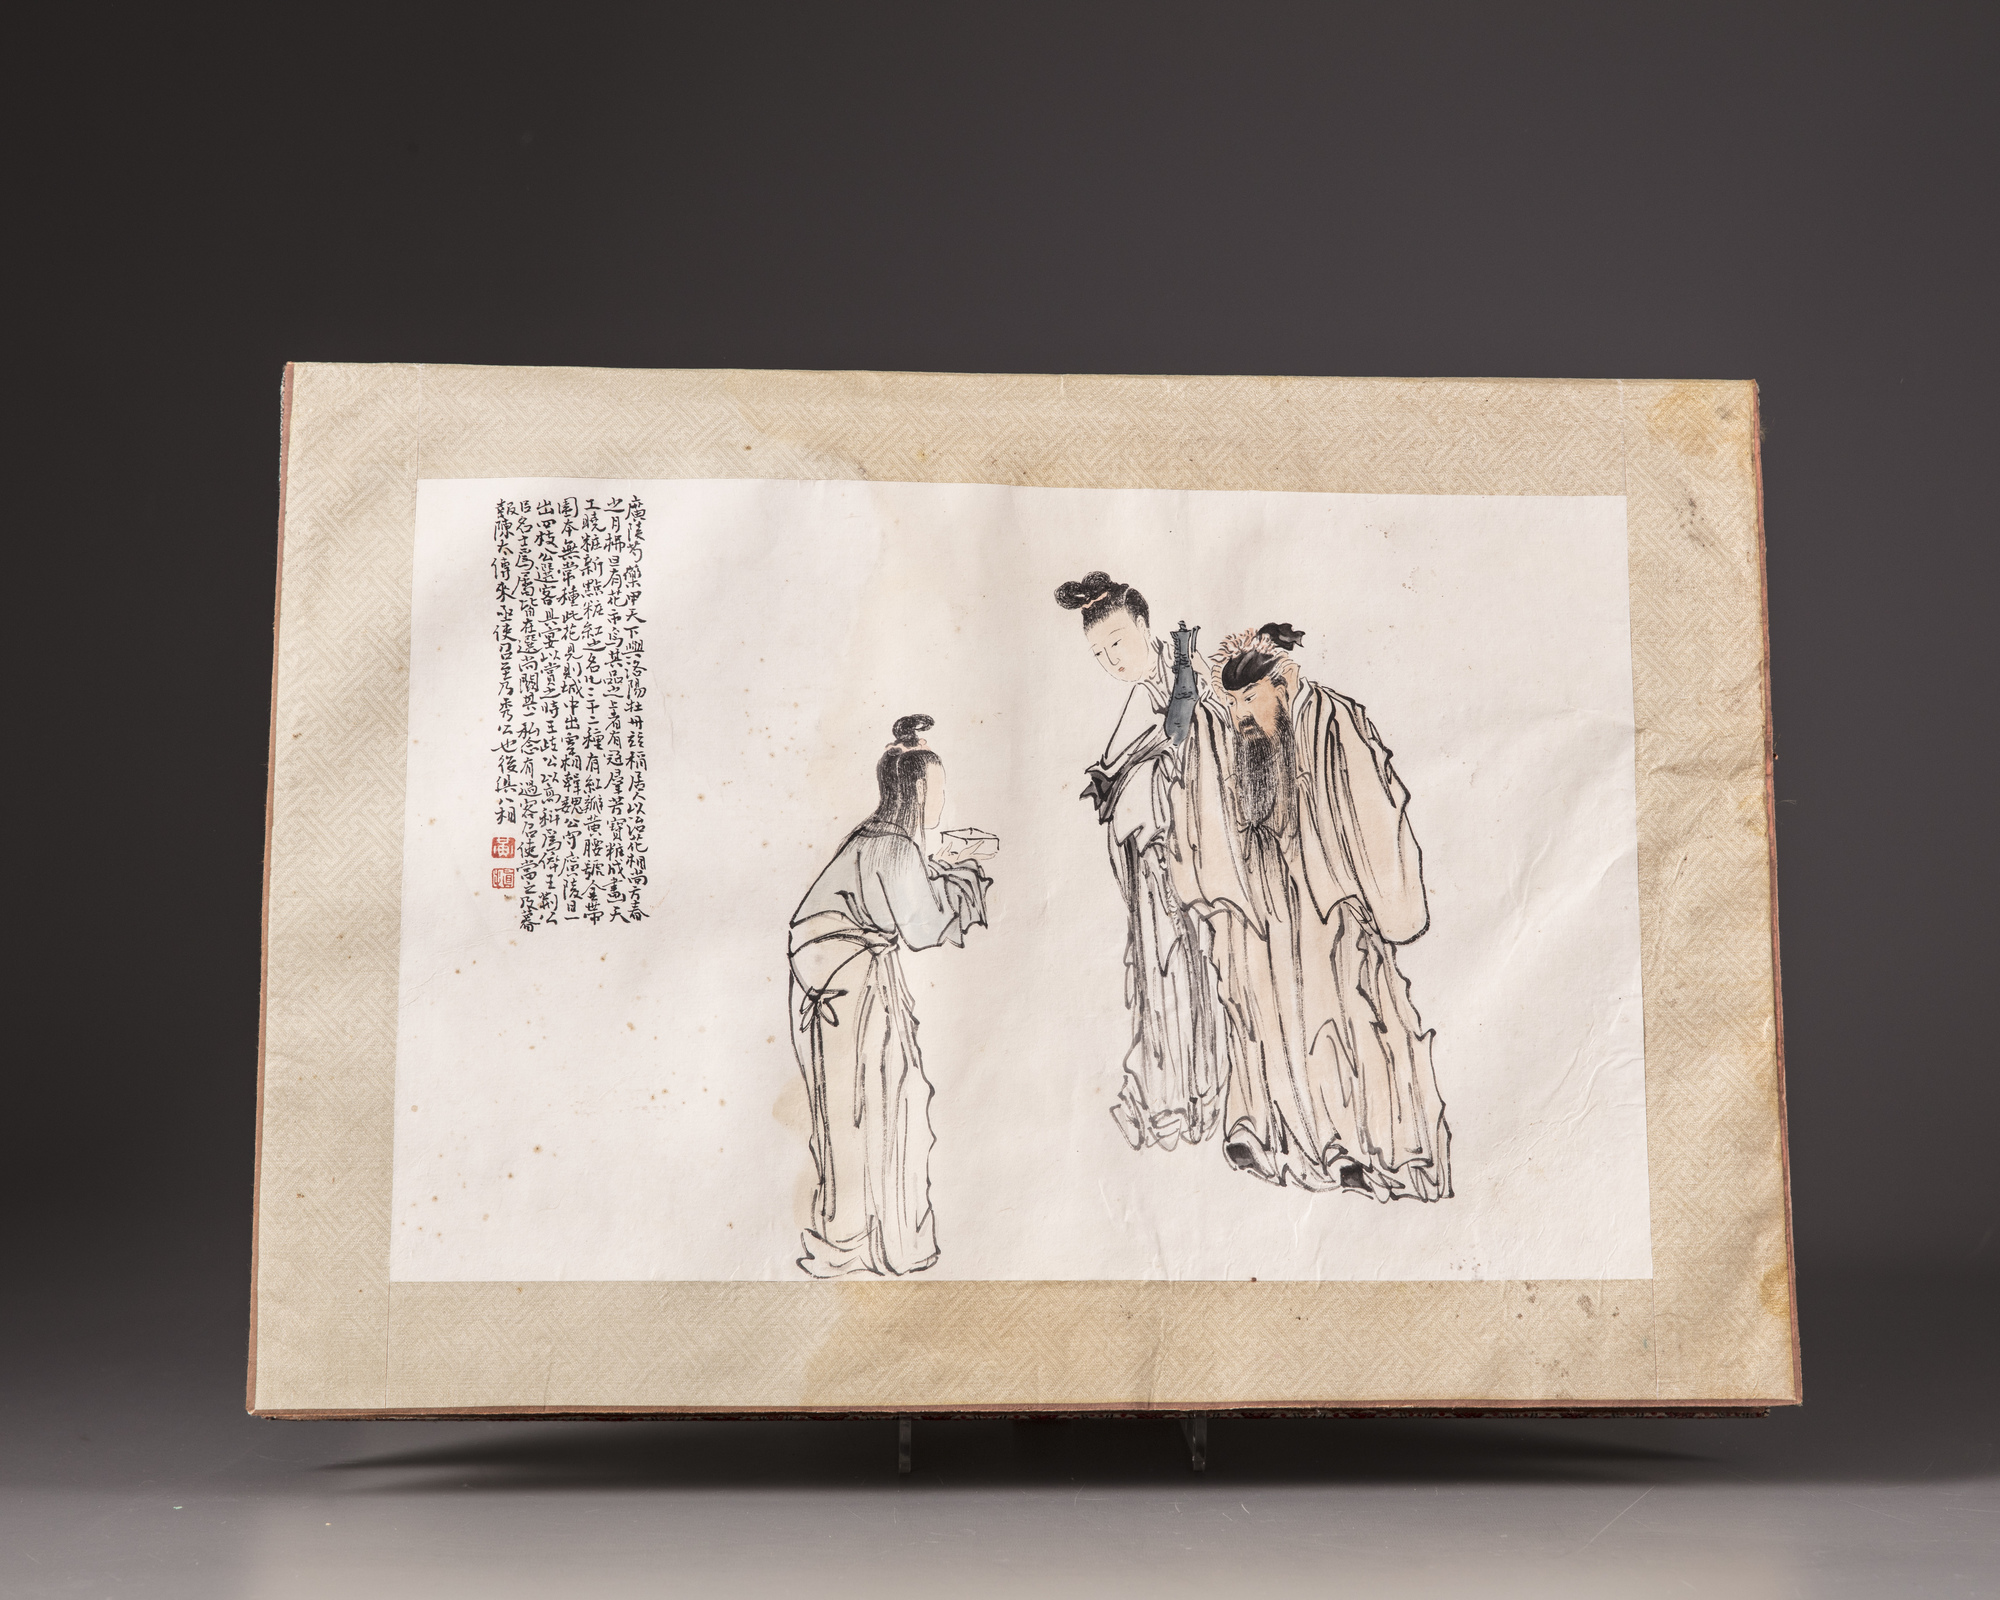 廣陵芍藥甲天下與洛陽牡丹竝稱居人以治花相尚方春
之月拂旦有花市焉其品之上者有冠羣芳寶粧成畫天
工曉粧新點粧紅之名凡三十二種有紅瓣黃腰號金帶
圍本無常種此花見則城中出宰相韓魏公守廣陵日一
出四枝公選客具宴以賞之時王歧公以高科爲倅王荆公
以名士爲屬皆在選尚闕其一私念有過客召使當之及暮
報陳太傅來亟使召至乃秀公也後俱入相